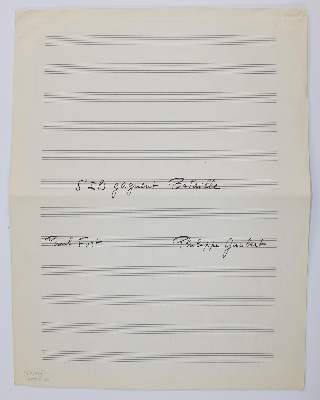 S'ils gagnent Bataille
Paul Fort Philippe Gaubert